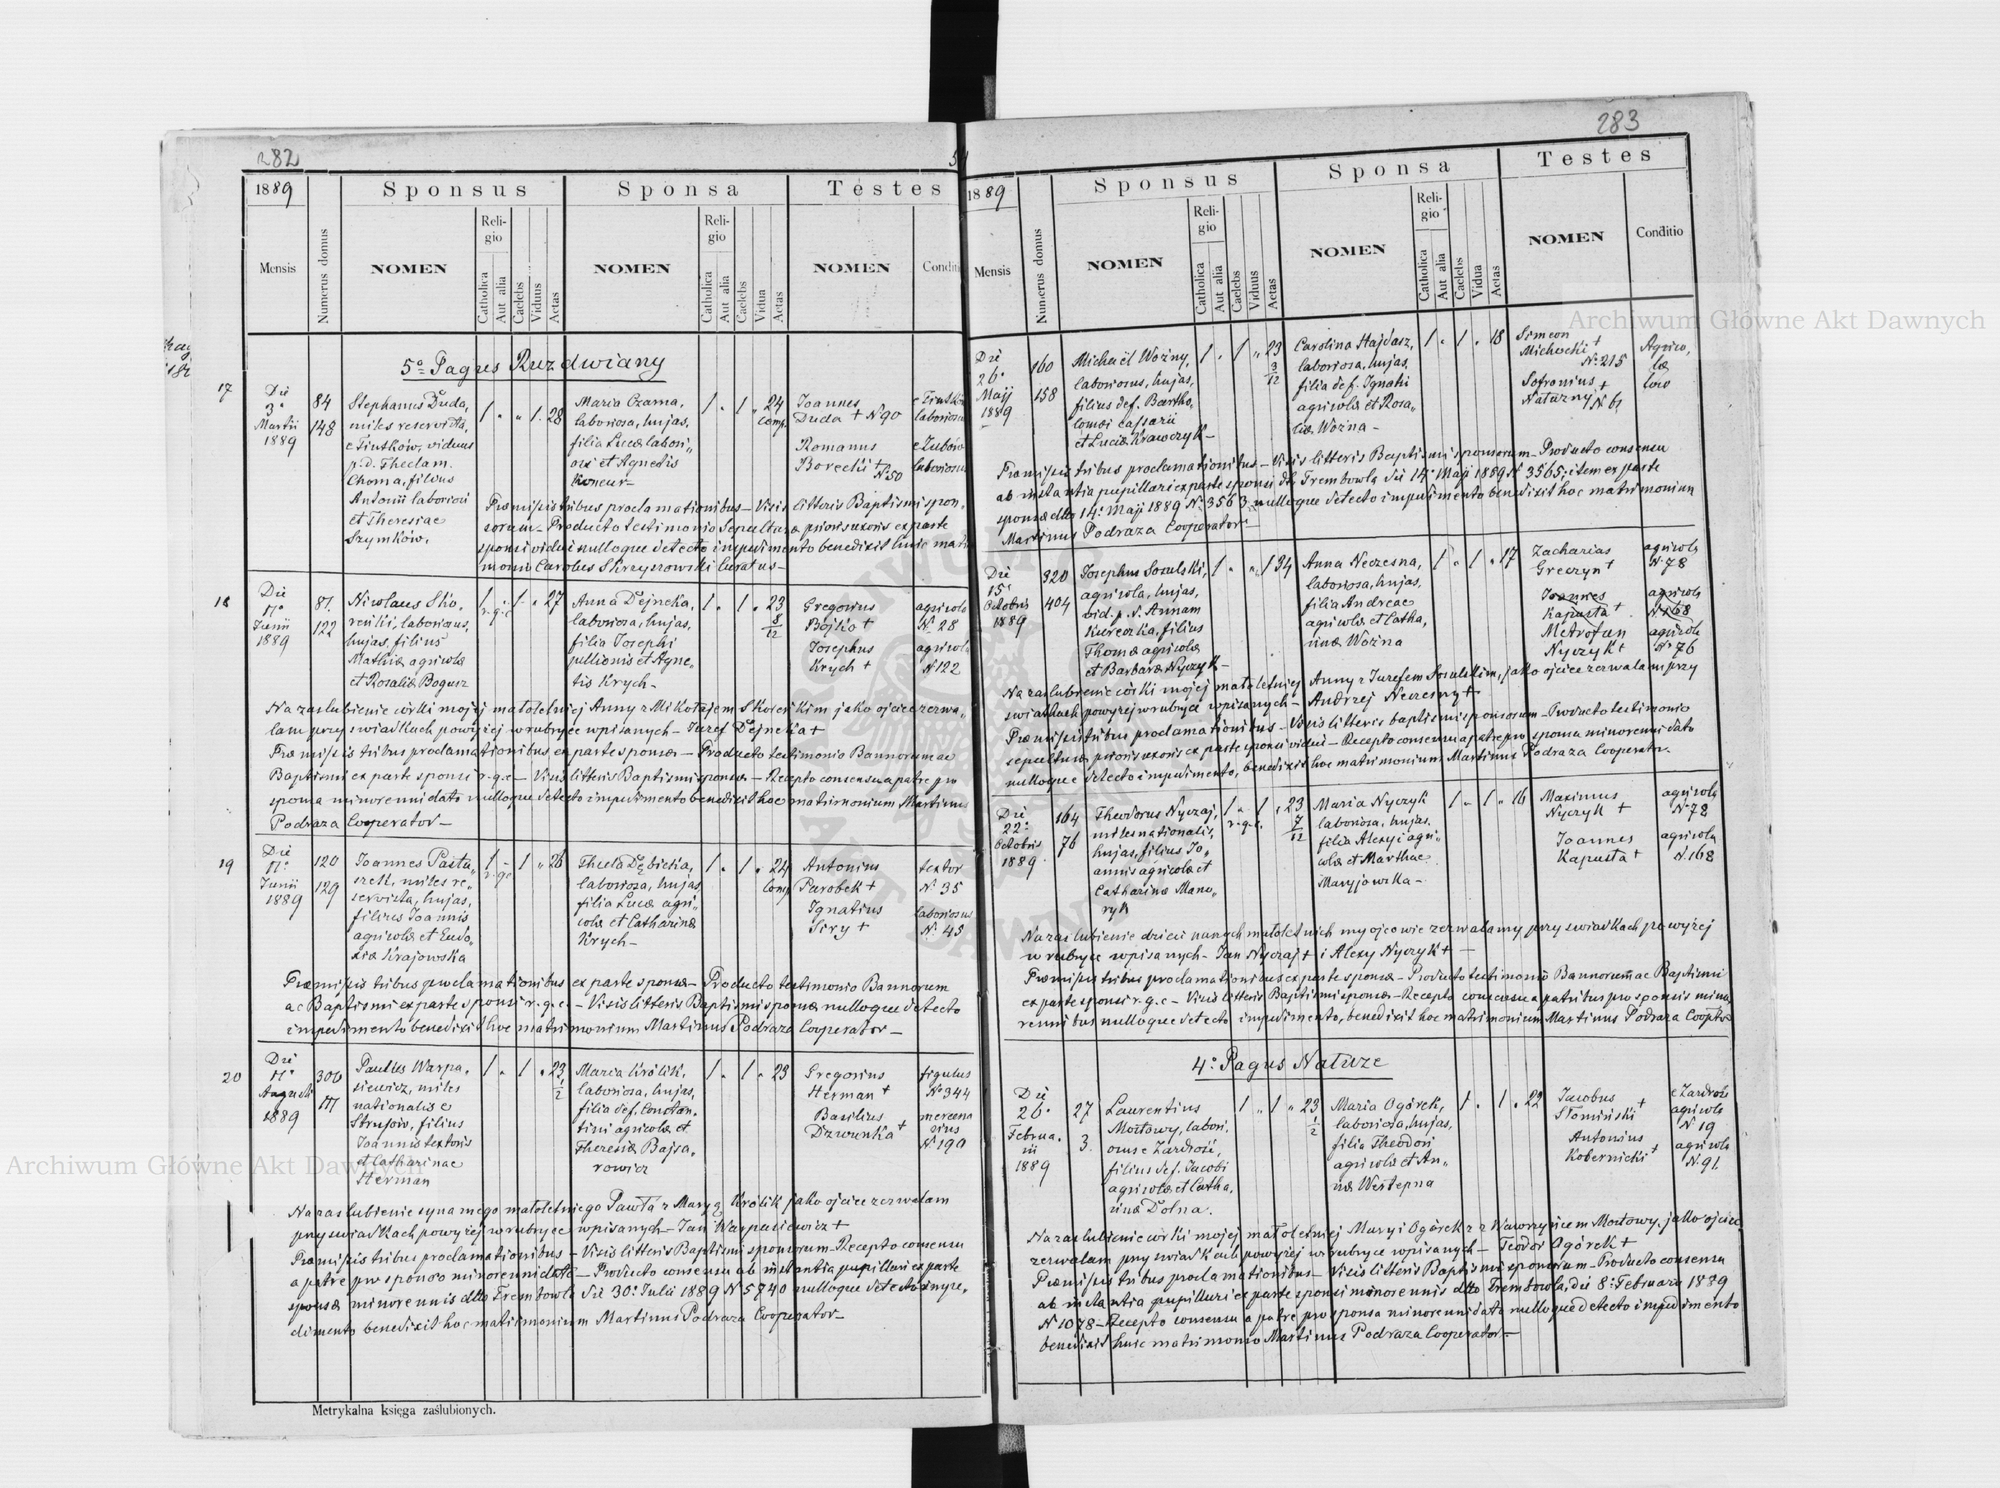 282
1889
Sponsus
Sponsa
Testes
Mensis
Numerus domus
NOMEN
Religio
Catholica
Aut alia
Caelebs
Viduus
Aetas
NOMEN
Religio
Catholica
Aut alia
Caelebs
Vidua
Aetas
NOMEN
5º Pagus Ruzdwiany
17
Die
3º
Martii
1889
84
148
Stephanus Duda,
miles reservista,
viduus
p. d. Theclam
Choma, filius
Antonii laboriosi
et Theresiae
Szymków.
28
Maria Czarna,
laboriosa, hujas,
filia Lucæ labori„
osi et Agnetis
24
Joannes
Duda + Nº 90
Romanus
Borecki +
Nº 50
laboriosus
Præmissis tribus proclamationibus – Visis litteris Baptismi spon„
sorum – Producto testimonio Sepulturæ prioris uxoris ex parte
sponsi vidui nulloque detecto impedimento benedixit huic matri
monio Carolus Skrzyszowski Curatus –
18
Die
Junii
1889
87.
122
Nicolaus Sko„
reński, laboriosus,
hujas, filius
Mathiæ agricolæ
et Rosaliæ Bogusz
r. g. c.
27
Anna Dejneka,
laboriosa, hujas,
filia Josephi
pellionis et Agne„
tis Krych –
23
8
12
Gregorius
Bojko +
Josephus
Krych +
agricola
Nº 28
agricola
Nº 122
Na zaślubienie córki mojej małoletniej Anny z Mikołajem Skoreńskim jako ojciec zezwa„
lam przy świadkach powyżej w rubryce wpisanych – Józef Dejneka +
Præmissis tribus proclamationibus ex parte sponsæ – Producto testimonio Bannorum ac
Baptismi ex parte sponsi r. g. c – Visis litteris Baptismi sponsæ – Recepto consensu a patre pro
sponsa minorenni dato nulloque detecto impedimento benedixit hoc matrimonium Martinus
Podraza Cooperator –
19
Die
Junii
1889
120
129
Joannes Pastu„
szek, miles re„
servista, hujas,
filius Joannis
agricolæ et Eudo„
xiæ Krajowska
r. g. c
26
Thecla Dębicka,
laboriosa, hujas
filia Lucæ agri„
colæ et Catharinæ
Krych –
24
comp
Antonius
Parobek +
Ignatius
Siry +
textor
Nº 35
laboriosus
Nº 45
Præmissis tribus proclamationibus ex parte sponsæ – Producto testimonio Bannorum
ac Baptismi ex parte sponsi r. g. c. – Visis litteris Baptismi sponsæ nulloque detecto
impedimento benedixit hoc matrimonium Martinus Podraza Cooperator –
20
Die
Augusti
1889
300
111
Paulus Warpa„
siewicz, miles
nationalis e
Strusów, filius
Joannis textoris
et Catharinae
Herman
23
1
2
Maria Królik,
laboriosa, hujas,
filia def. Constan„
tini agricolæ et
Theresiæ Bajsa„
rowicz
23
Gregorius
Herman +
Basilius
Dzwonka +
figulus
Nº 344
mercena
rius
Nº 190
Na zaślubienie syna mego małoletniego Pawła z Maryą Królik jako ojciec zezwalam
przy świadkach powyżej w rubryce wpisanych – Jan Warpasiewicz +
Præmissis tribus proclamationibus – Visis litteris Baptismi sponsorum – Recepto consensu
a patre pro sponso minorenni dato – Producto consensu ab instantia pupillari ex parte
sponsæ minorennis dtto Trembowla die 30º Julii 1889 Nº 5740 nulloque detecto impe„
dimento benedixit hoc matrimonium Martinus Podraza Cooperator –
Metrykalna księga zaślubionych.
283
1889
Sponsus
Sponsa
Testes
Mensis
Numerus domus
NOMEN
Religio
Catholica
Aut alia
Caelebs
Viduus
Aetas
NOMEN
Religio
Catholica
Aut alia
Caelebs
Vidua
Aetas
NOMEN
Conditio
Die
26º
Maji
1889
160
158
Michaël Woźny,
laboriosus, hujas,
filius def. Bartho„
lomæi
et Luciæ Krawczyk –
23
3
12
Carolina Hajdasz,
laboriosa, hujas,
filia def. Ignatii
agricolæ et Rosa„
liæ Woźna –
18
Simeon
Michocki +
Nº 215
Sofronius +
Naturny
Nº 61
Agrico„
læ
Præmissis tribus proclamationibus – Visis litteris Baptismi sponsorum – Producto consensu
ab instantia pupillari ex parte sponsi dtto Trembowla die 14º Maji 1889 Nº 3565, item ex parte
sponsæ dtto 14º Maji 1889 Nº 3563 nulloque detecto impedimento benedixit hoc matrimonium
Martinus Podraza Cooperator –
Die
15º
Octobris
1889
320
404
Josephus Sosulski,
agricola, hujas,
vid. p. d. Annam
Kureczka, filius
Thomæ agricolæ
et Barbaræ Nyczyk –
34
Anna Neczesna,
laboriosa, hujas,
filia Andreae
agricolæ et Catha„
rinæ Woźna
17
Zacharias
Greczyn +
Joannes
Kapusta +
Metrofan
Nyczyk +
agricola
Nº 78
agricola
Nº 168
agricola
Nº 76
Na zaślubienie córki mojej małoletniej Anny z Józefem Sosulskim, jako ojciec zezwalam przy
świadkach powyżej w rubryce wpisanych – Andrzej Neczesny +
Præmissis tribus proclamationibus – Visis litteris baptismi sponsorum – Producto testimonio
sepulturæ prioris uxoris ex parte sponsi vidui – Recepto consensu a patre pro sponsa minorenni dato
nulloque detecto impedimento, benedixit hoc matrimonium Martinus Podraza Cooperator.
Die
22º
Octobris
1889
164
76
Theodorus Nyczaj,
miles nationalis,
hujas, filius Jo„
annis agricolæ et
Catharinæ Mano„
ryk
r. g. c.
23
7
12
Maria Nyczyk
laboriosa, hujas,
filia Alexyi agri„
colæ et Marthae
Maryjowska –
16
Maximus
Nyczyk +
Joannes
Kapusta +
agricola
Nº 78
agricola
Nº 168
Na zaślubienie dzieci naszych małoletnich my ojcowie zezwalamy przy świadkach powyżej
w rubryce wpisanych – Jan Nyczaj + i Alexy Nyczyk + –
Præmissis tribus proclamationibus ex parte sponsæ – Producto testimonio Bannorum ac Baptismi
ex parte sponsi r. g. c – Visis litteris Baptismi sponsæ – Recepto consensu a patribus pro sponsis mino„
rennibus nulloque detecto impedimento, benedixit hoc matrimonium Martinus Podraza Cooptr
4º Pagus Nałuże
Die
26º
Februa„
rii
1889
27
3
Laurentius
Mostowy, labori„
osus e Zazdrość,
filius def. Jacobi
agricolæ et Catha„
rinæ Dolna.
23
1
2
Maria Ogórek,
laboriosa, hujas,
filia Theodori
agricolæ et An„
næ Westepna
22
Jacobus
Słomiński +
Antonius
Kobernicki +
e Zazdrość
agricola
Nº 19
agricola
Nº 91
Na zaślubienie córki mojej małoletniej Maryi Ogórek z Wawrzyńcem Mostowy, jako ojciec
zezwalam przy świadkach powyżej w rubryce wpisanych – Teodor Ogórek +
Præmissis tribus proclamationibus – Visis litteris Baptismi sponsorum – Producto consensu
ab instantia pupillari ex parte sponsi minorennis dtto Trembowla, die 8º Februarii 1889
Nº 1078 – Recepto consensu a patre pro sponsa minorenni dato nulloque detecto impedimento
benedixit huic matrimonio Martinus Podraza Cooperator –
Archiwum Główne Akt Dawnych
Archiwum Główne Akt Dawnych